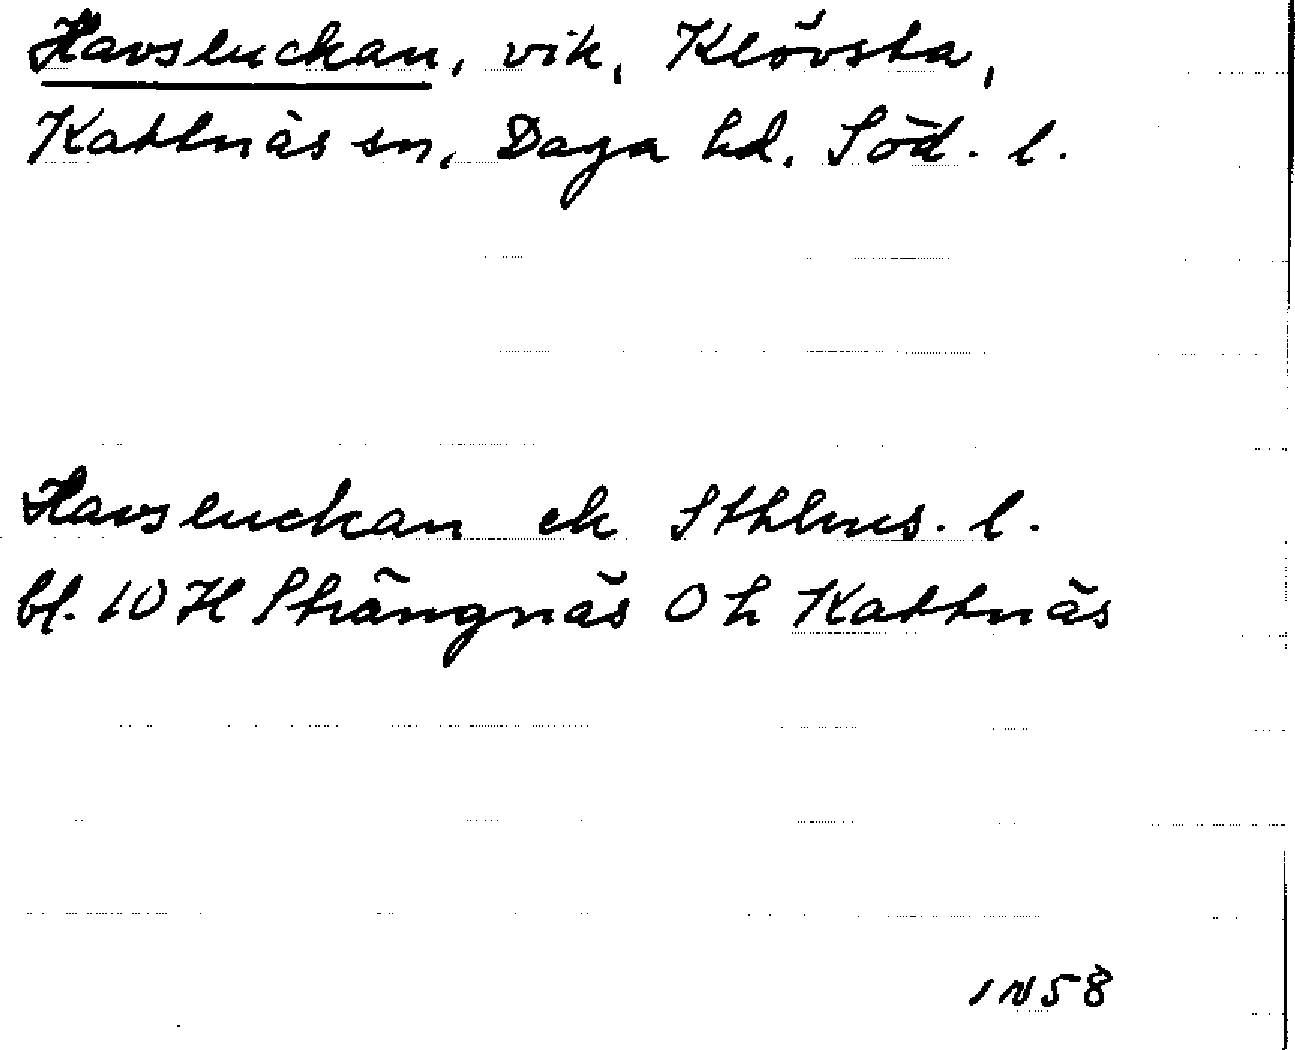 Havsluckan, vik, Klövsta,
Kattnäs sn, Daga hd. Söd. l.
Havsluckan ek Sthlms. l.
bl. 10 H Strängnäs 0 h Kattnäs
1N58